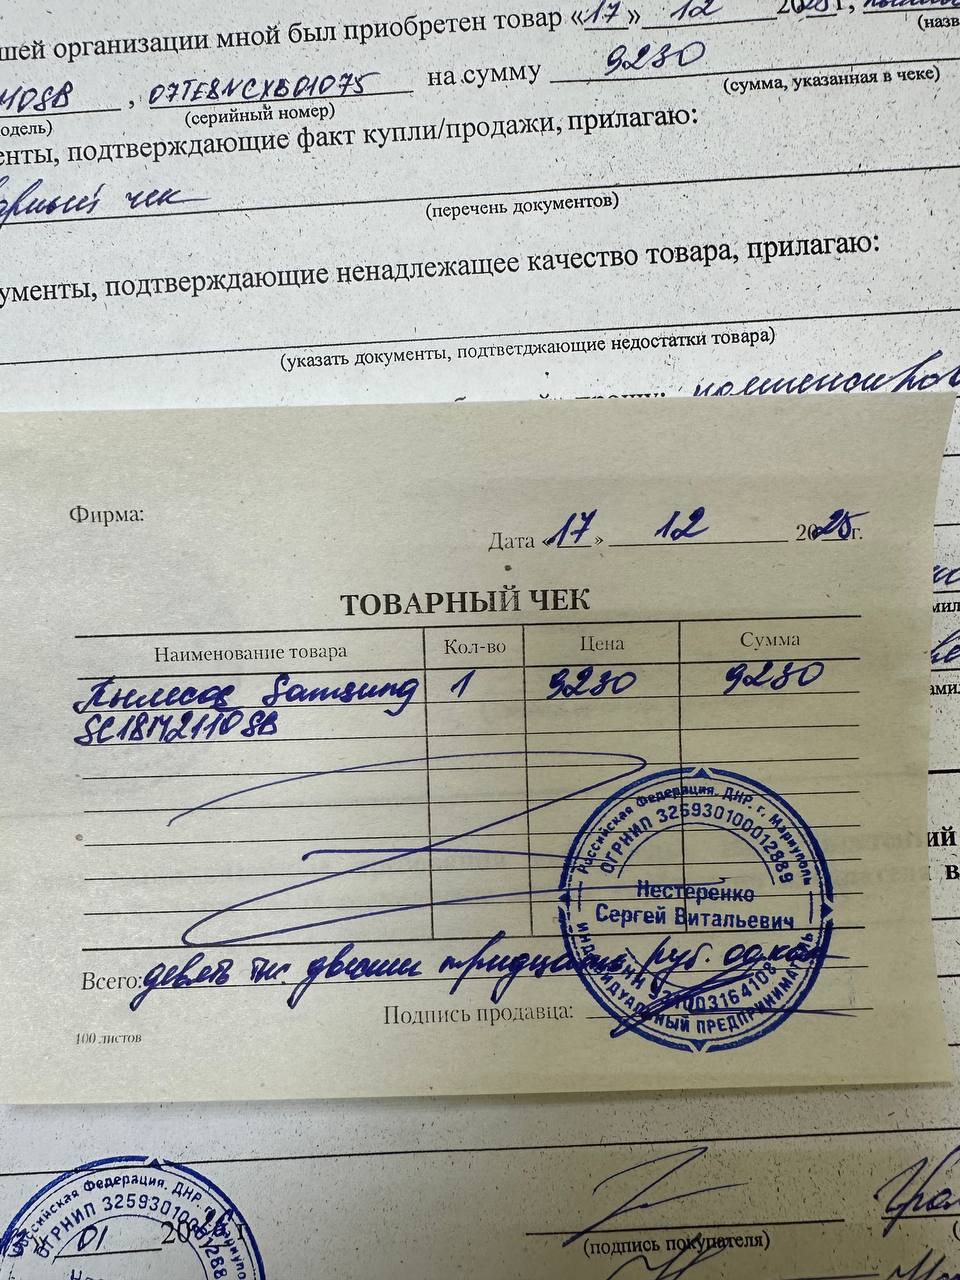 шей организации мной был приобретен товар «17» 12 2025 г,
(назв
110SB , 07TE8NCXB01075 на сумму 9230
одель) (серийный номер) (сумма, указанная в чеке)
енты, подтверждающие факт купли/продажи, прилагаю:
арный чек
(перечень документов)
ументы, подтверждающие ненадлежащее качество товара, прилагаю:
(указать документы, подтветджающие недостатки товара)
прошу:
Фирма:
Дата «17» 12 2025г.
ТОВАРНЫЙ ЧЕК
Наименование товара Кол-во Цена Сумма
Пылесос Samsung 1 9230 9230
SC18M2110SB
Российская Федерация. ДНР. г. Мариуполь
ОГРНИП 325930100012889
Нестеренко
Сергей Витальевич
ИНН 931003164108
ИНДИВИДУАЛЬНЫЙ ПРЕДПРИНИМАТЕЛЬ
Всего: девять тис двести тридцать руб. 00 коп
Подпись продавца:
100 листов
ий
в
Российская Федерация. ДНР. г. Мариуполь
ОГРНИП 3259301000
01 20
(подпись покупателя)